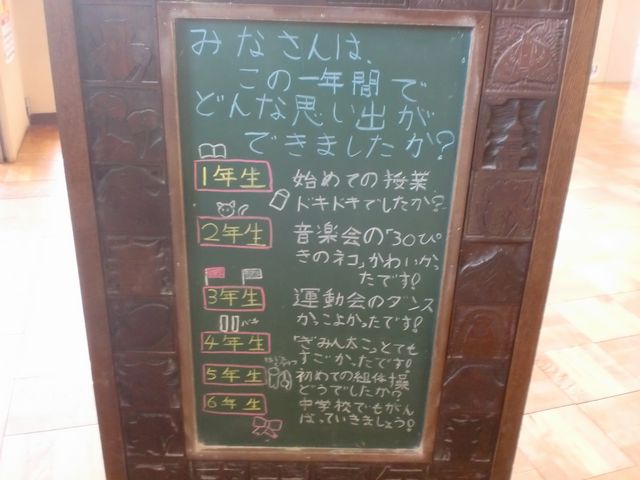 みなさんは、
この一年間で
どんな思い出が
できましたか?
1年生
始めての授業
ドキドキでしたか?
2年生
音楽会の「30ぴ
きのネコ」かわいかっ
たです!
3年生
運動会のダンス
かっこよかったです!
4年生
「ぎみん太こ」とても
すごかったです!
5年生
初めての組体操
どうでしたか?
6年生
中学校でもがん
ばっていきましょう!